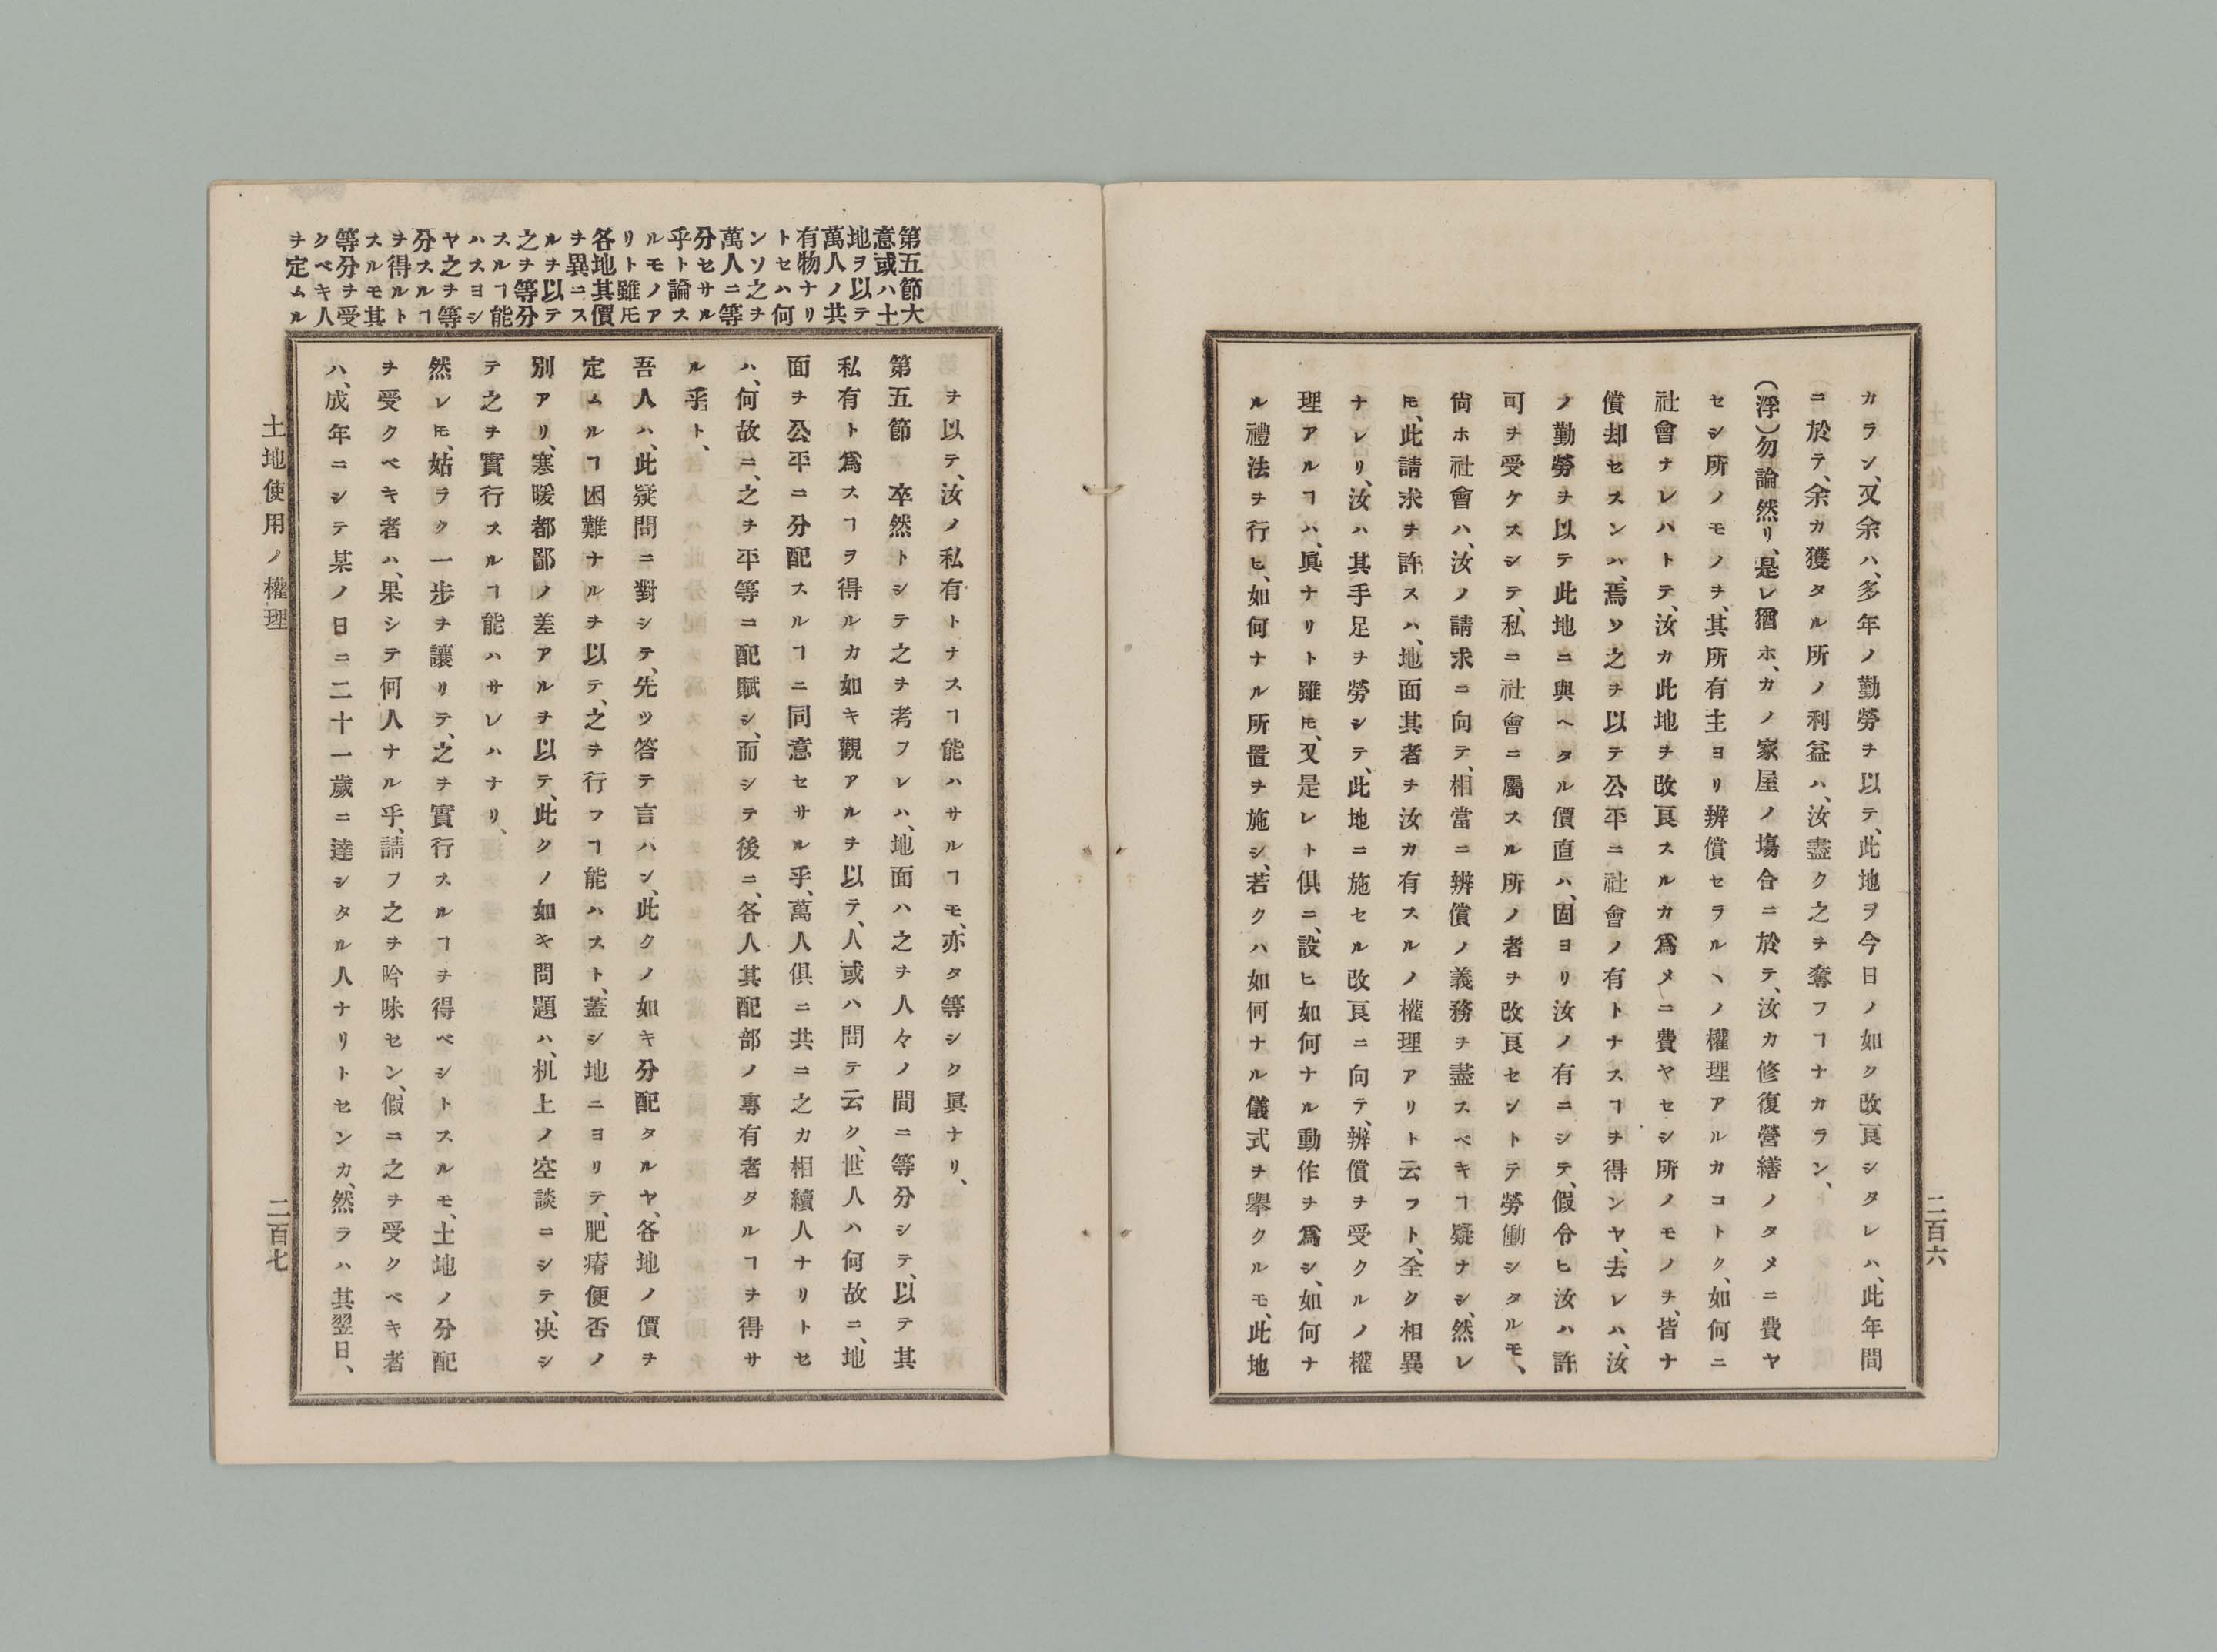 二百六
カラン、又余ハ、多年ノ勤勞ヲ以テ、此地ヲ今日ノ如ク改良シタレハ、此年間
ニ於テ、余カ獲タル所ノ利益ハ、汝盡ク之ヲ奪フヿナカラン、
(浮)勿論然リ、是レ猶ホ、カノ家屋ノ塲合ニ於テ、汝カ修復營繕ノタメニ費ヤ
セシ所ノモノヲ、其所有主ヨリ辨償セラルヽノ權理アルカコトク、如何ニ
社會ナレハトテ、汝カ此地ヲ改良スルカ爲メニ費ヤセシ所ノモノヲ、皆ナ
償却セスンハ、焉ソ之ヲ以テ公平ニ社會ノ有トナスヿヲ得ンヤ、去レハ、汝
ノ勤勞ヲ以テ此地ニ與ヘタル價直ハ、固ヨリ汝ノ有ニシテ、假令ヒ汝ハ許
可ヲ受ケスシテ、私ニ社會ニ屬スル所ノ者ヲ改良セントテ勞働シタルモ、
尙ホ社會ハ、汝ノ請求ニ向テ、相當ニ辨償ノ義務ヲ盡スベキヿ疑ナシ、然レ
𪜈、此請求ヲ許スハ、地面其者ヲ汝カ有スルノ權理アリト云フト、全ク相異
ナレリ、汝ハ其手足ヲ勞シテ、此地ニ施セル改良ニ向テ、辨償ヲ受クルノ權
理アルヿハ、眞ナリト雖𪜈、又是レト俱ニ、設ヒ如何ナル動作ヲ爲シ、如何ナ
ル禮法ヲ行ヒ、如何ナル所置ヲ施シ、若クハ如何ナル儀式ヲ擧クルモ、此地
ヲ以テ、汝ノ私有トナスヿ能ハサルヿモ、亦タ等シク眞ナリ、
第五節大
意或ハ土
地ヲ以テ
萬人ノ共
有物ナリ
トセハ何
ンソ之ヲ
萬人ニ等
分セサル
乎ト論ス
ルモノア
リト雖𪜈
各地其價
ヲ異ニス
ルヲ以テ
之ヲ等分
スルヿ能
ハスヨシ
ヤ之ヲ等
分スルヿ
ヲ得ルト
スルモ其
等分ヲ受
クベキ人
ヲ定ムル
第五節 卒然トシテ之ヲ考フレハ、地面ハ之ヲ人々ノ間ニ等分シテ、以テ其
私有ト爲スヿヲ得ルカ如キ觀アルヲ以テ、人或ハ問テ云ク、世人ハ何故ニ、地
面ヲ公平ニ分配スルヿニ同意セサル乎、萬人俱ニ共ニ之カ相續人ナリトセ
ハ、何故ニ、之ヲ平等ニ配賦シ、而シテ後ニ、各人其配部ノ專有者タルヿヲ得サ
ル乎ト、
吾人ハ、此疑問ニ對シテ、先ツ答テ言ハン、此クノ如キ分配タルヤ、各地ノ價ヲ
定ムルヿ困難ナルヲ以テ、之ヲ行フヿ能ハスト、蓋シ地ニヨリテ、肥瘠便否ノ
別アリ、寒暖都鄙ノ差アルヲ以テ、此クノ如キ問題ハ、机上ノ空談ニシテ、决シ
テ之ヲ實行スルヿ能ハサレハナリ、
然レ𪜈、姑ラク一步ヲ讓リテ、之ヲ實行スルヿヲ得ベシトスルモ、土地ノ分配
ヲ受クベキ者ハ、果シテ何人ナル乎、請フ之ヲ吟味セン、假ニ之ヲ受クベキ者
ハ、成年ニシテ某ノ日ニ二十一歲ニ達シタル人ナリトセンカ、然ラハ其翌日、
土地使用ノ權理
二百七